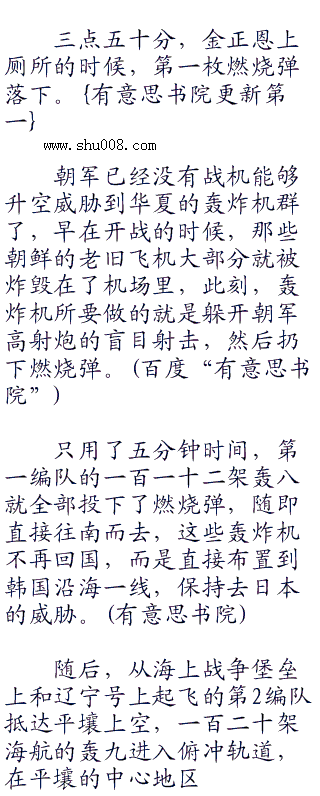 三点五十分，金正恩上
厕所的时候，第一枚燃烧弹
落下。{有意思书院更新第
一}
www.shu008.com
朝军已经没有战机能够
升空威胁到华夏的轰炸机群
了，早在开战的时候，那些
朝鲜的老旧飞机大部分就被
炸毁在了机场里，此刻，轰
炸机所要做的就是躲开朝军
高射炮的盲目射击，然后扔
下燃烧弹。(百度“有意思书
院”)
只用了五分钟时间，第
一编队的一百一十二架轰八
就全部投下了燃烧弹，随即
直接往南而去，这些轰炸机
不再回国，而是直接布置到
韩国沿海一线，保持去日本
的威胁。(有意思书院)
随后，从海上战争堡垒
上和辽宁号上起飞的第2编队
抵达平壤上空，一百二十架
海航的轰九进入俯冲轨道，
在平壤的中心地区